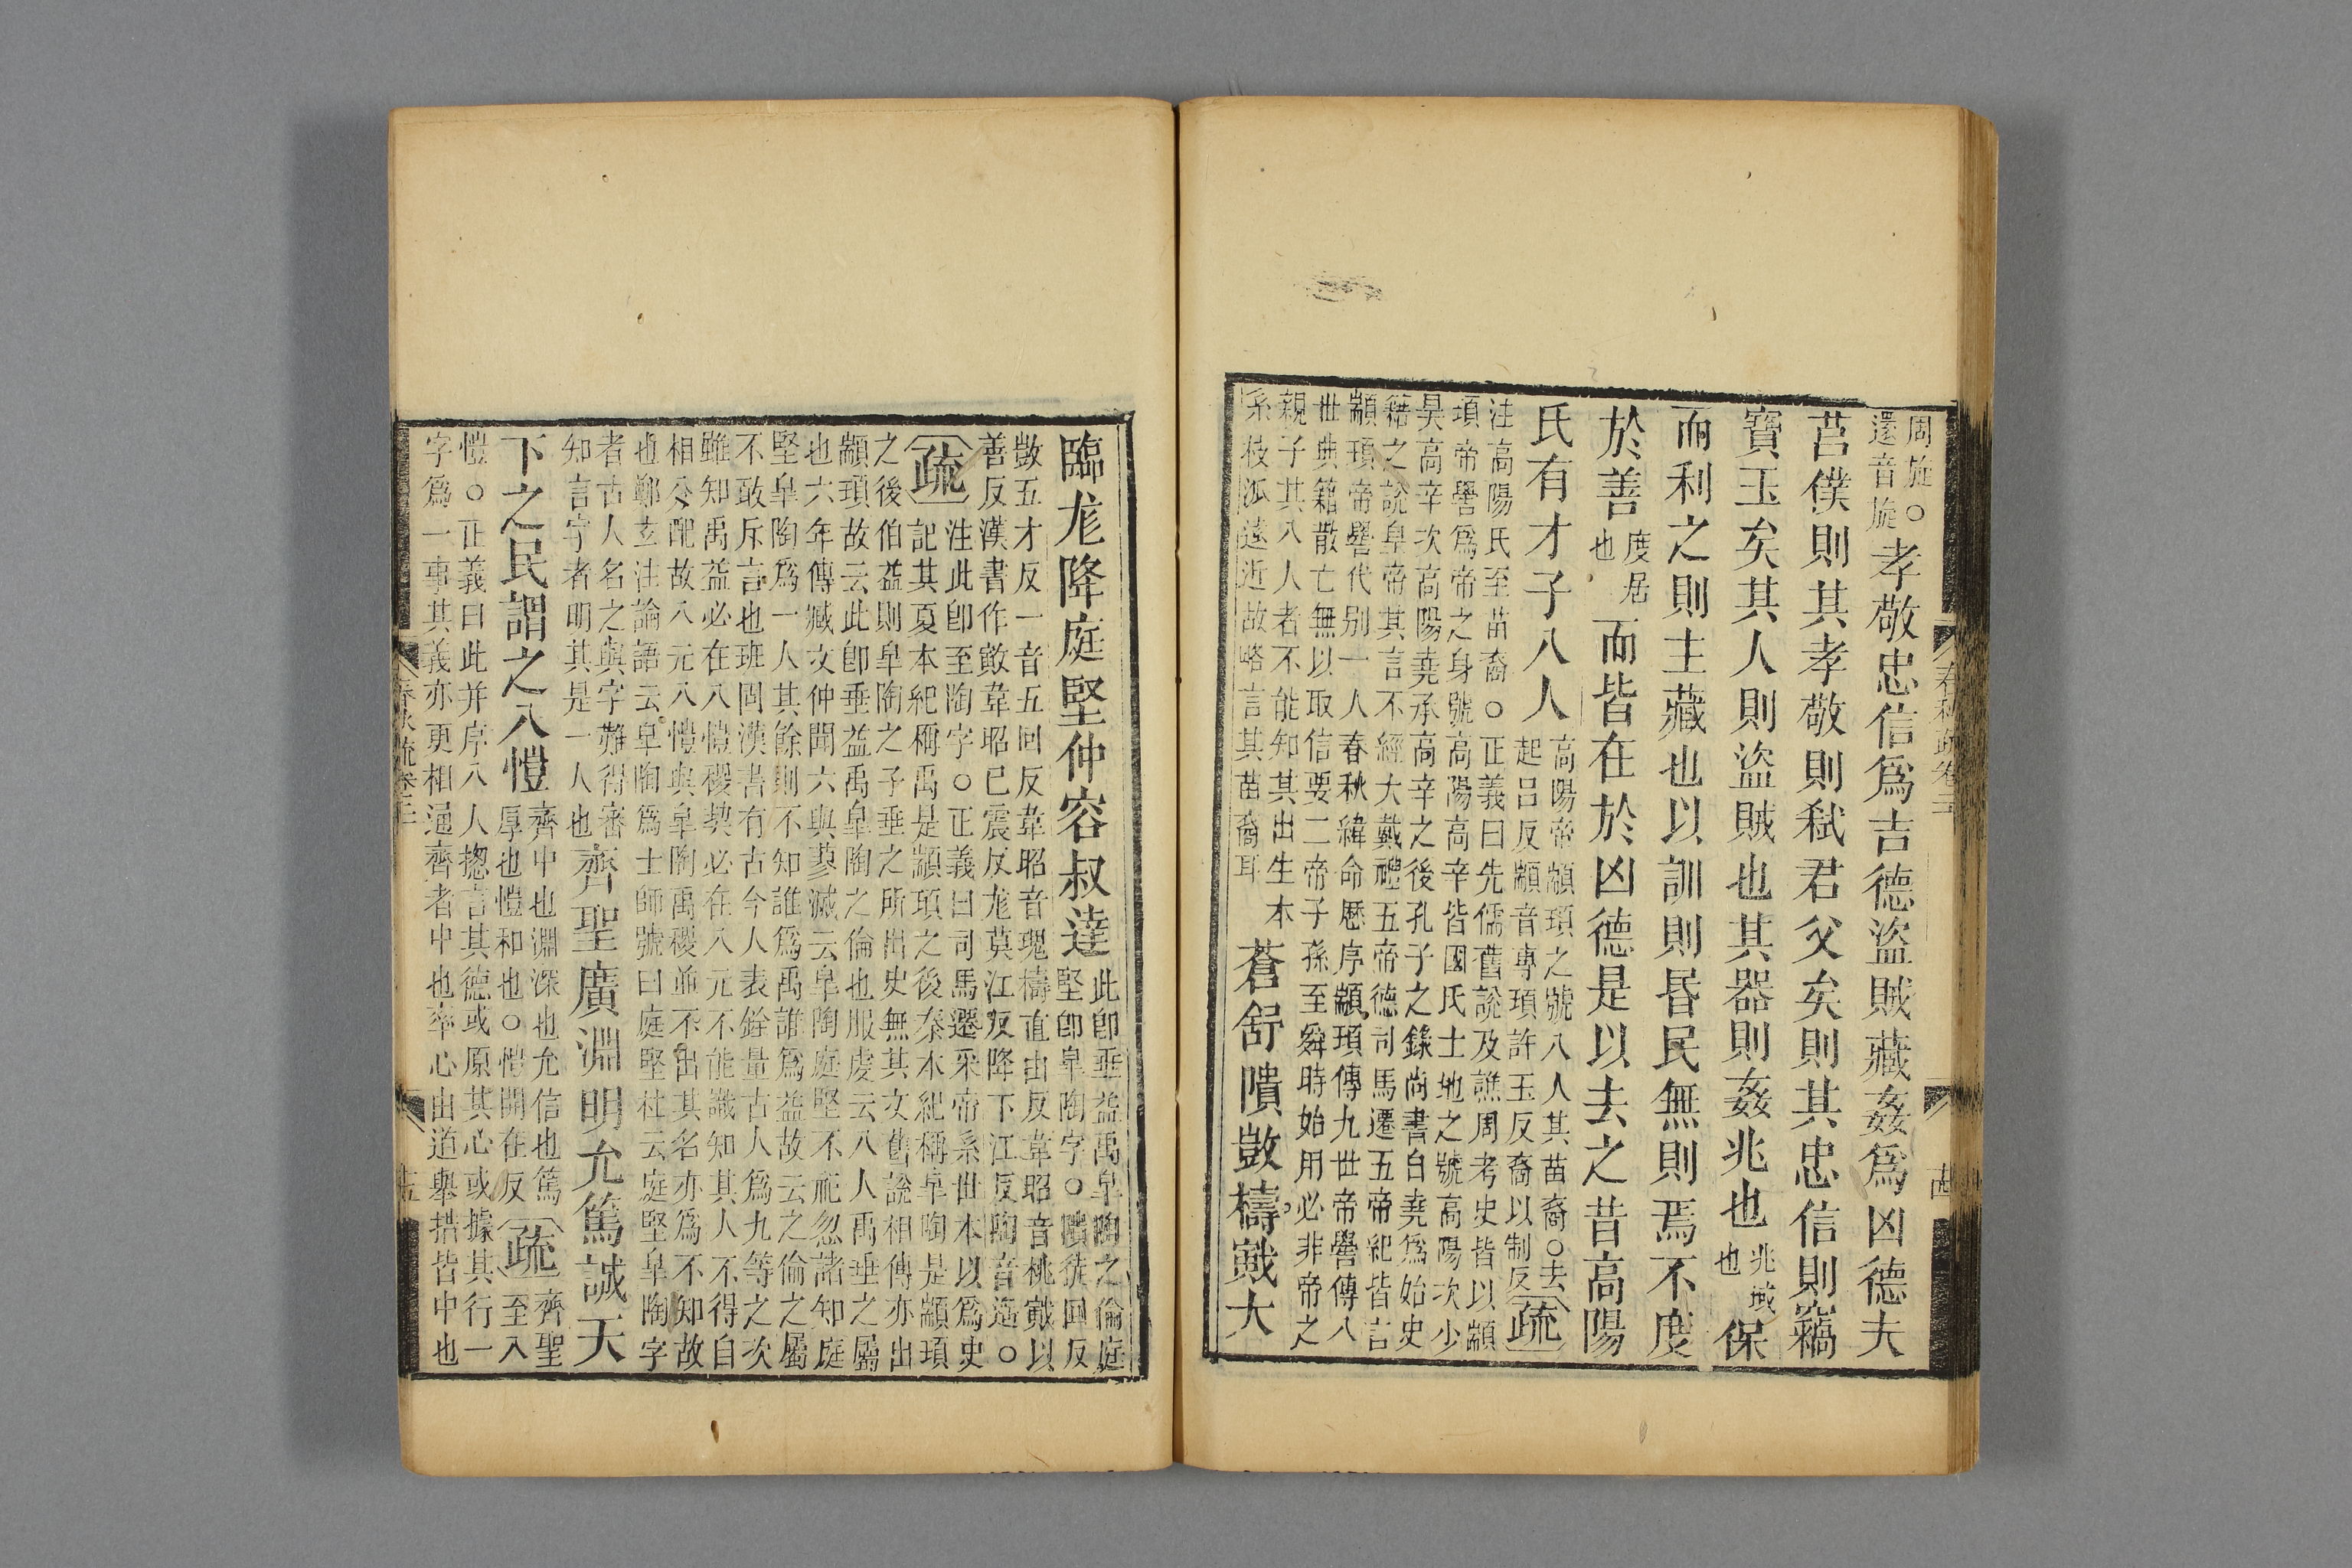 周旋○
還音旋
孝敬忠信爲吉德盜賊藏姦爲凶德夫
莒僕則其孝敬則弑君父矣則其忠信則竊
寶玉矣其人則盜賊也其器則姦兆也
兆域
也
保
而利之則主藏也以訓則昬民無則焉不度
於善
度居
也
而皆在於凶德是以去之昔高陽
氏有才子八人
高陽帝顓頊之號八人其苗裔○去
起呂反顓音專頊許玉反裔以制反
疏
注高陽氏至苗裔○正義曰先儒舊說及譙周考史皆以顓
頊帝嚳爲帝之身號高陽高辛皆國氏土地之號高陽次少
昊高辛次高陽堯承高辛之後孔子之錄尚書自堯爲始史
籍之說皇帝其言不經大戴禮五帝德司馬遷五帝紀皆言
顓頊帝嚳代別一人春秋緯命歷序顓頊傳九世帝嚳傳八
世典籍散亡無以取信要二帝子孫至舜時始用必非帝之
親子其八人者不能知其出生本
系枝派遠近故略言其苗裔耳
蒼舒隤敳檮戭大
臨尨降庭堅仲容叔達
此卽垂益禹皐陶之倫庭
堅卽皐陶字○隤徒回反
敳五才反一音五回反韋昭音瑰檮直由反韋昭音桃戭以
善反漢書作敒韋昭已震反尨莫江反降下江反陶音遥○
疏
注此卽至陶字○正義曰司馬遷采帝系世本以爲史
記其夏本紀稱禹是顓頊之後秦本紀稱皐陶是顓頊
之後伯益則皐陶之子垂之所出史無其文舊說相傳亦出
顓頊故云此卽垂益禹皐陶之倫也服虔云八人禹垂之屬
也六年傳臧文仲聞六與蓼滅云皐陶庭堅不祀忽諸知庭
堅皐陶爲一人其餘則不知誰爲禹誰爲益故云之倫之屬
不敢斥言也班固漢書有古今人表銓量古人爲九等之次
雖知禹益必在八愷稷契必在八元不能識知其人不得自
相分配故八元八愷與皐陶禹稷並不出其名亦爲不知故
也鄭玄注論語云皐陶爲士師號曰庭堅杜云庭堅皐陶字
者古人名之與字難得審
知言字者明其是一人也
齊聖廣淵明允篤誠天
下之民謂之八愷
齊中也淵深也允信也篤
厚也愷和也○愷開在反
疏
齊聖
至八
愷○正義曰此并序八人揔言其德或原其心或據其行一
字爲一事其義亦更相通齊者中也率心由道舉措皆中也
春秋疏卷二